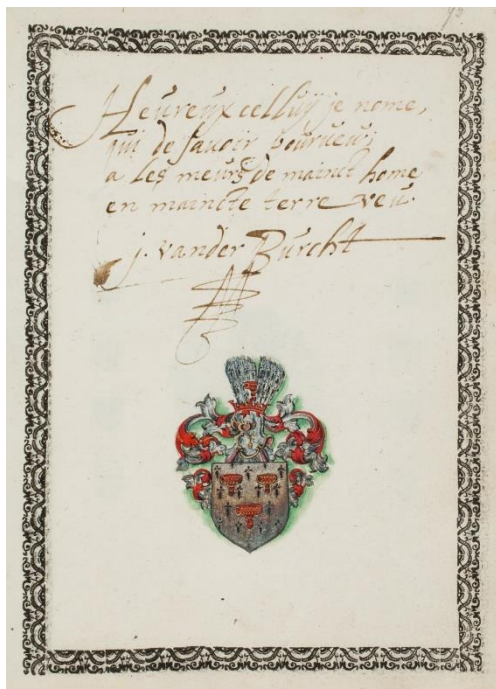 Heureux celluÿ je nome,
qui de sauoir pourueu,
a les meurs de mainct home
en maincte terre veu.
j. vander Burcht